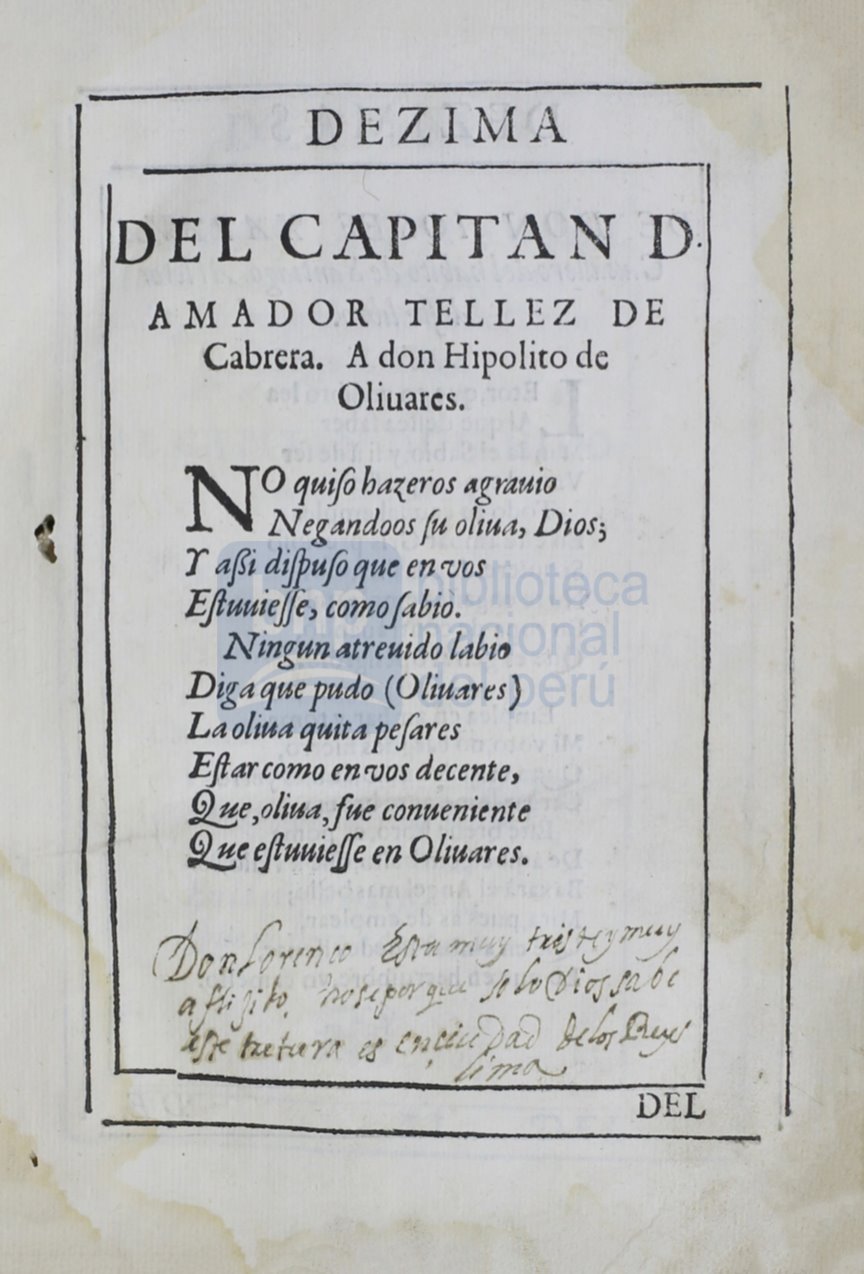 DEZIMA
DEL CAPITAN D.
AMADOR TELLEZ DE
Cabrera. A don Hipolito de
Oliuares.
NO quiſo hazeros agrauio
Negandoos ſu oliua, Dios;
Y aſsi diſpuſo que en vos
Eſtuuieſſe, como ſabio.
Ningun atreuido labio
Diga que pudo (Oliuares)
La oliua quita peſares
Eſtar como en vos decente,
Que, oliua, fue conueniente
Que eſtuuieſſe en Oliuares.
Don Lorenco Esta muy triste y muy
afligito. no se por que solo Dios sabe
este es en ciudad de los Reyes
lima
DEL
biblioteca
nacional
del perú